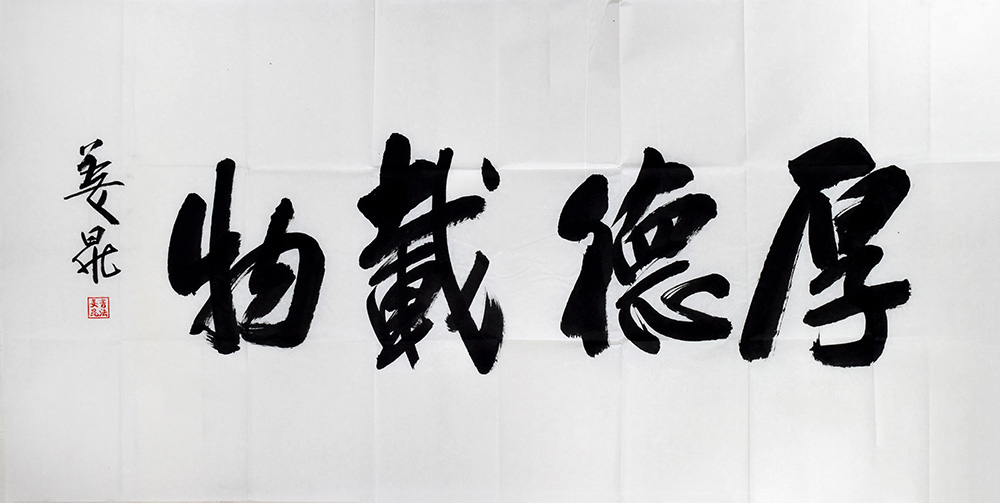 厚德載物
姜昆